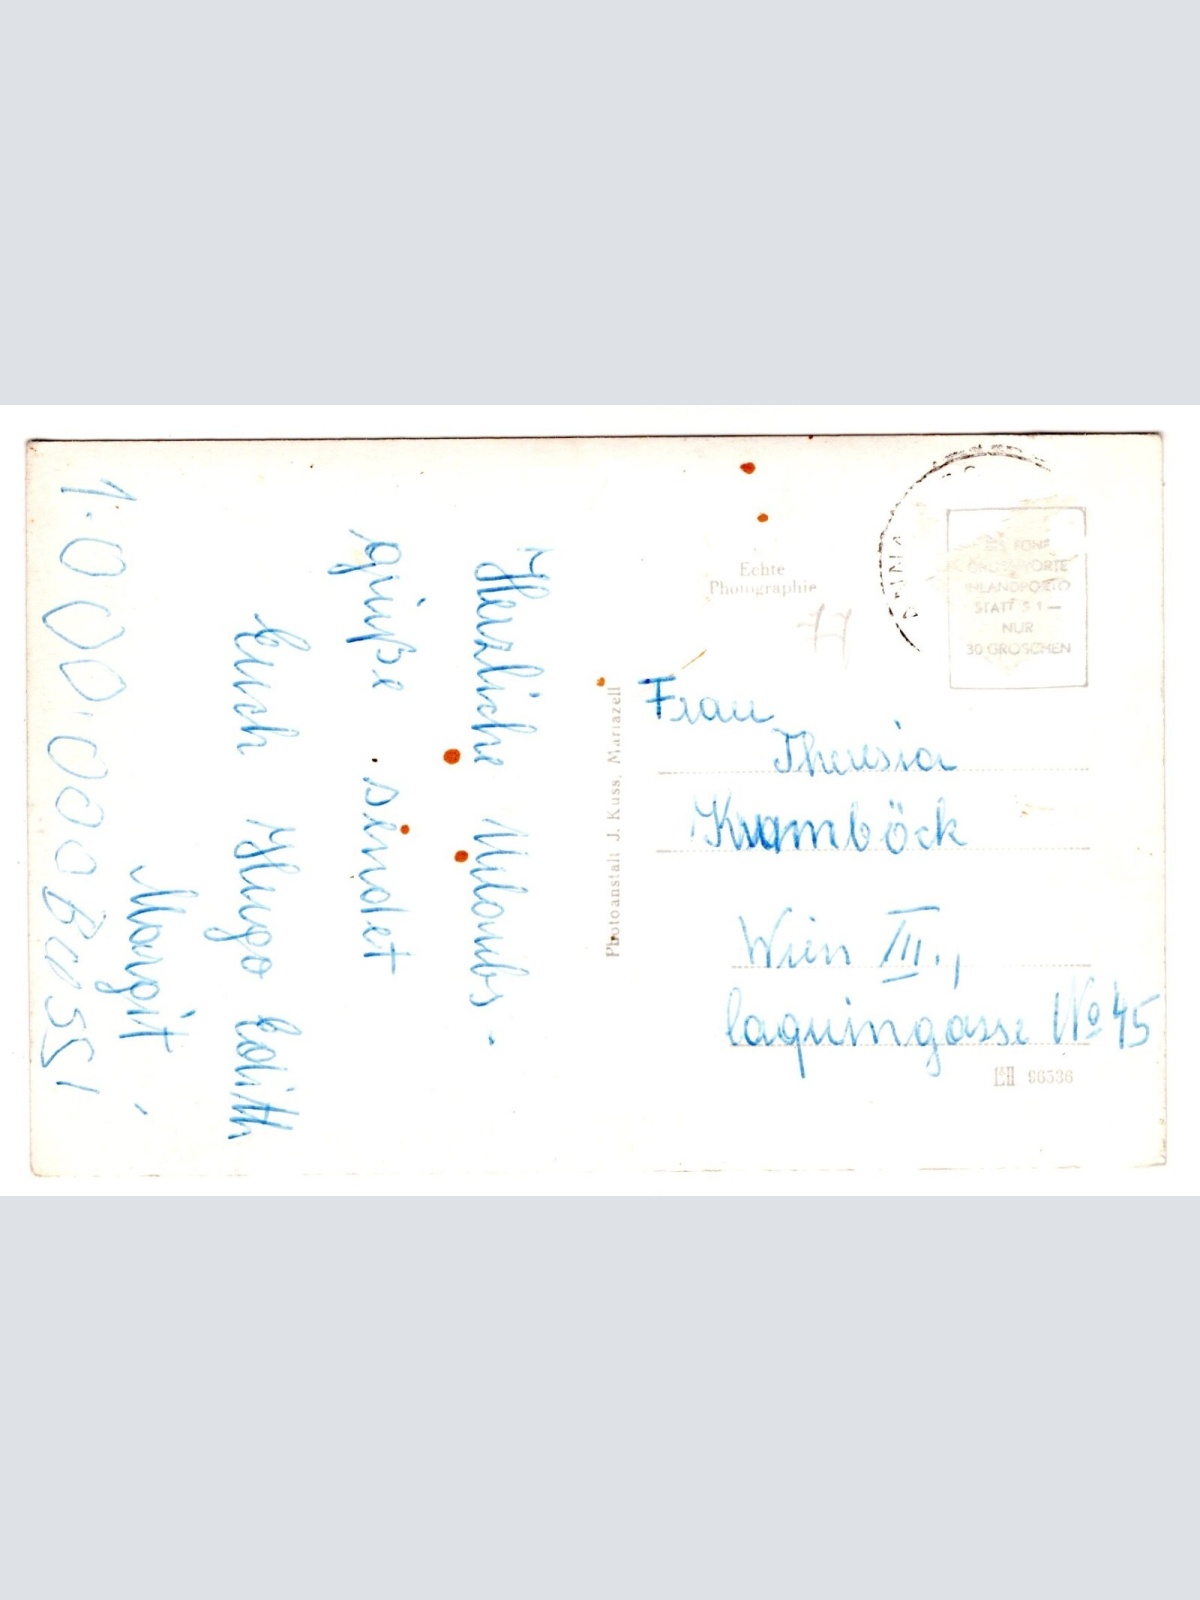 Herzliche Urlaubs-
grüße sendet
Euch Hugo Edith
Margit
1.000.000 Bussi
Echte
Photographie
77
BIS FÜNF
GRUSSWORTE
INLANDPORTO
STATT S 1—
NUR
30 GROSCHEN
Photoanstalt J. Kuss, Mariazell
Frau
Theresia
Kramböck
Wien III.,
laquingasse No 45
96536